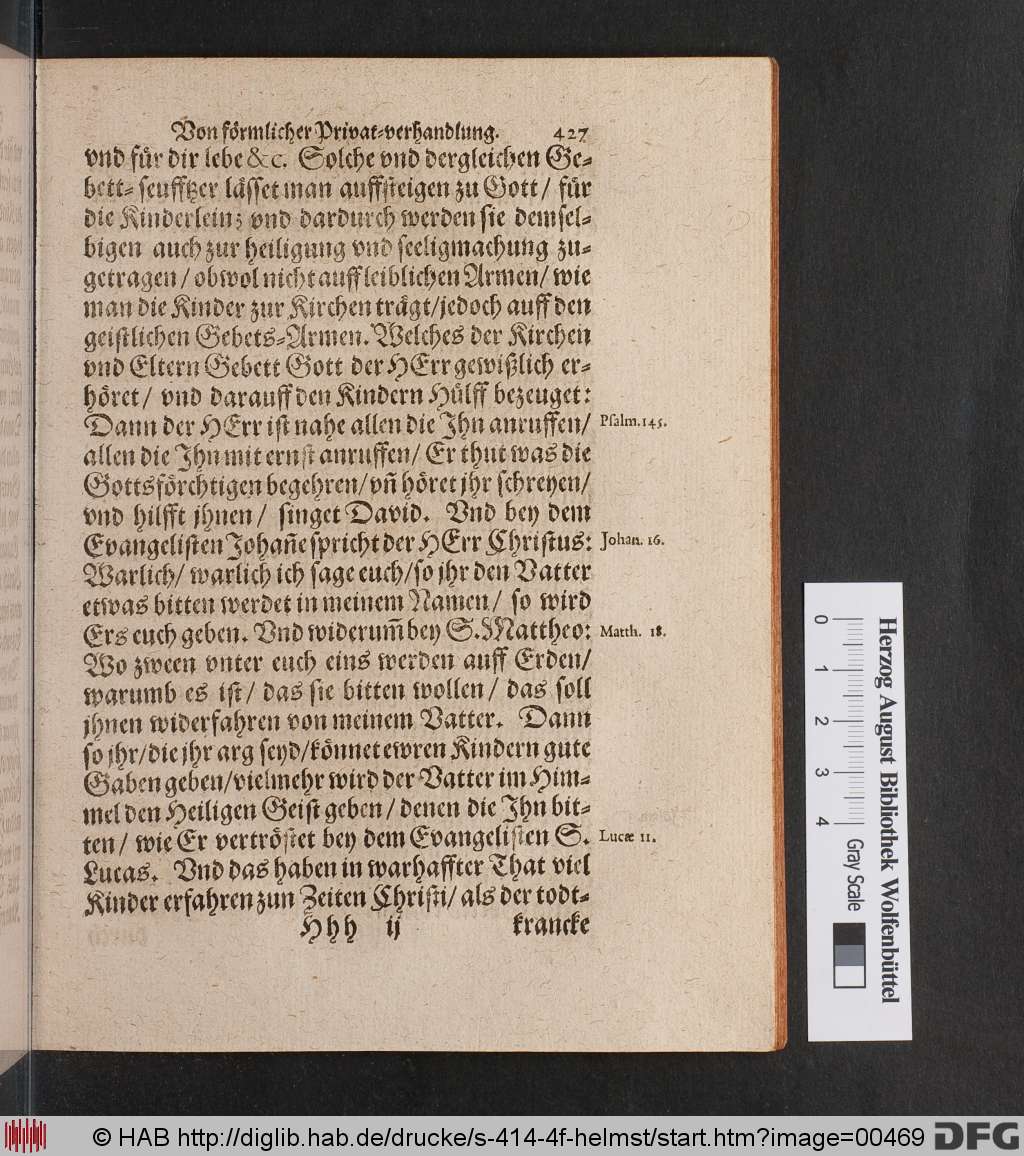 Von förmlicher Privat-verhandlung. 427
vnd für dir lebe &c. Solche vnd dergleichen Ge-
bett-seufftzer lässet man auffsteigen zu Gott / für
die Kinderlein; vnd dardurch werden sie demsel-
bigen auch zur heiligung vnd seeligmachung zu-
getragen / obwol nicht auff leiblichen Armen / wie
man die Kinder zur Kirchen trägt / jedoch auff den
geistlichen Gebets-Armen. Welches der Kirchen
vnd Eltern Gebett Gott der HErr gewißlich er-
höret / vnd darauff den Kindern Hülff bezeuget:
Dann der HErr ist nahe allen die Jhn anruffen / Psalm. 145.
allen die Jhn mit ernst anruffen / Er thut was die
Gottsförchtigen begehren / vñ höret jhr schreyen /
vnd hilfft jhnen / singet David. Vnd bey dem
Evangelisten Johañe spricht der HErr Christus: Johan. 16.
Warlich / warlich ich sage euch / so jhr den Vatter
etwas bitten werdet in meinem Namen / so wird
Ers euch geben. Vnd widerum̃ bey S. Mattheo: Matth. 18.
Wo zween vnter euch eins werden auff Erden /
warumb es ist / das sie bitten wollen / das soll
jhnen widerfahren von meinem Vatter. Dann
so jhr / die jhr arg seyd / könnet ewren Kindern gute
Gaben geben / vielmehr wird der Vatter im Him-
mel den Heiligen Geist geben / denen die Jhn bit-
ten / wie Er vertröstet bey dem Evangelisten S. Lucæ 11.
Lucas. Vnd das haben in warhaffter That viel
Kinder erfahren zun Zeiten Christi / als der todt-
Hhh ij krancke
0 1 2 3 4 Gray Scale
Herzog August Bibliothek Wolfenbüttel
© HAB http://diglib.hab.de/drucke/s-414-4f-helmst/start.htm?image=00469 DFG